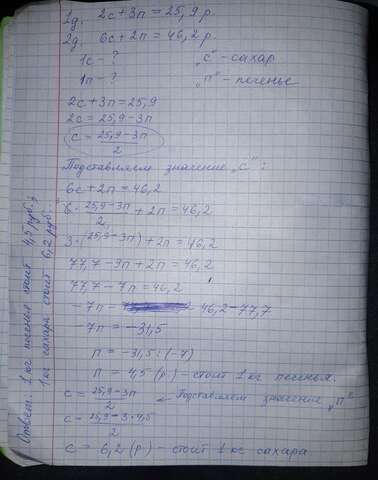 1д. 2с+3п=25,9 р.
2д. 6с+2п=46,2 р.
1с - ? "с" - сахар
1п - ? "п" - печенье
2с+3п=25,9
2с = 25,9-3п
с = (25,9-3п)/2
Подставляем значение "с":
6с+2п=46,2
6 · (25,9-3п)/2 + 2п=46,2
3·(25,9-3п)+2п=46,2
77,7-9п+2п=46,2
77,7-7п=46,2
-7п = 46,2-77,7
-7п = -31,5
п = -31,5:(-7)
п = 4,5 (р) - стоит 1 кг печенья.
с = (25,9-3п)/2 ← Подставляем значение "п"
с = (25,9-3·4,5)/2
с = 6,2 (р) - стоит 1 кг сахара
Ответ: 1 кг печенья стоит 4,5 руб.;
1 кг сахара стоит 6,2 руб.